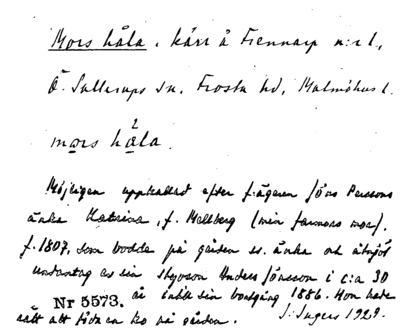 Mors håla, kärr å Fiennarp n:r 1,
Ö. Sallerups sn, Frosta hd, Malmöhus l.
mạrs hå²la.
Möjligen uppkallat efter f. ägaren Jöns Perssons
änka Katrina, f. Mellberg (min farmors mor),
f. 1807, som bodde på gården ss. änka och åtnjöt
undantag av sin styvson Anders Jönsson i c:a 30
år intill sin bortgång 1886. Hon hade
Nr 5573.
rätt att föda en ko på gården. I. Ingers 1929.